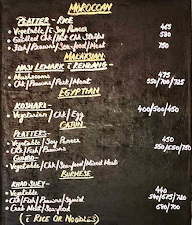 MOROCCAN
PLATTER - RICE
• Vegetable / Soy Paneer 465
• Grilled Chk / Hot Chk Strips 580
• Fish / Prawns / Sea-food / Meat 750
MALAYSIAN
NASI LEMAK & RENDANG
• Mushrooms 475
• Chk / Prawns / Pork / Meat 550/700/725
EGYPTIAN
KOSHARI -
• Vegetarian / Chk / Egg 400/500/450
CAJUN
PLATTERS -
• Vegetable / Soy Paneer 450
• Chk / Fish / Prawns 550/650/750
GUMBO -
• Vegetable / Chk / Sea-food / Mixed Meat
BURMESE
KHAO SUEY -
• Vegetable 440
• Chk / Fish / Prawns / Squid 540/675/725
• Crab Meat / Sea-food 680/700
(& RICE OR NOODLES)